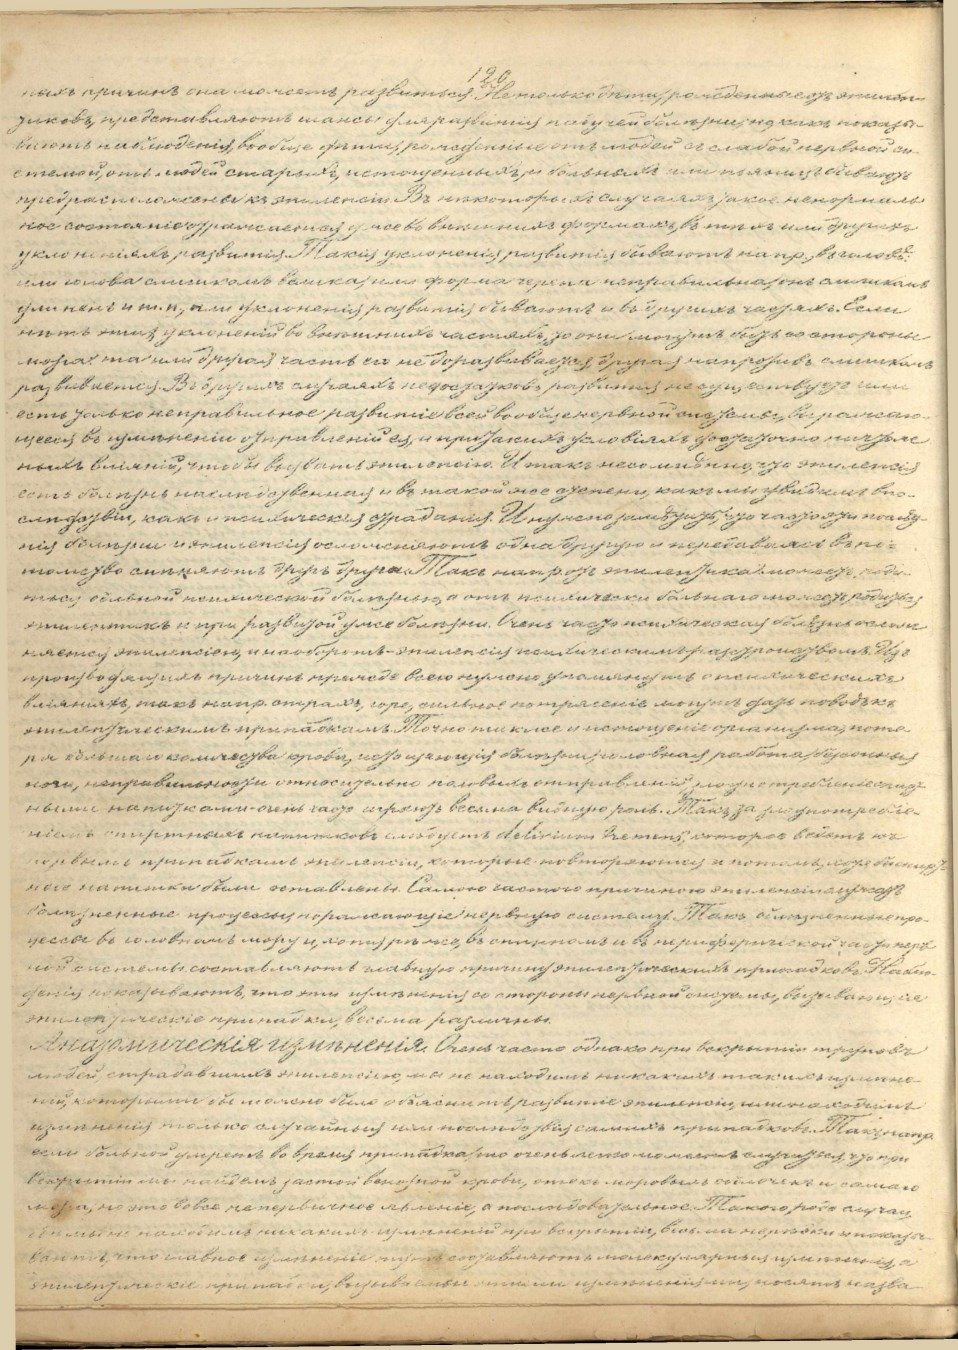 120
ныхъ причинъ она можетъ развиться. Не только дѣти, рожденные отъ эпилеп-
тиковъ, представляютъ шансы для развитія падучей болѣзни, но какъ показы-
ваютъ наблюденія, вообще дѣти, рожденные отъ людей съ слабой нервной си-
стемой, отъ людей старыхъ, истощенныхъ, и больныхъ или пьяницъ бываютъ
предрасположены къ эпилепсіи. Въ некоторыхъ случаяхъ такое ненормаль-
ное состояніе отражается уже во внѣшнихъ формахъ, въ тѣхъ или другихъ
уклоненіяхъ развитія. Такія уклоненія развитія бываютъ напр. въ головѣ:
или голова слишкомъ велика, или форма черепа неправильна, онъ слишкомъ
длиненъ и т.п., или уклоненія развитія бываютъ и въ другихъ частяхъ. Если
нѣтъ этихъ уклоненій во внѣшнихъ частяхъ, то они могутъ быть со стороны
мозга: та или другая часть его не доразвивается, другая напротивъ слишкомъ
развивается. Въ другихъ случаяхъ недостатковъ развитія не существуетъ или
есть только неправильное развитіе всей вообще нервной системы, выражаю-
щееся въ измѣненіи отправленій ея, и при такихъ условіяхъ достаточно ничтож-
ныхъ вліяній, чтобы вызвать эпилепсію. И такъ несомнѣнно, что эпилепсія
есть болѣзнь наслѣдственная и въ такой же степени, какъ мы увидимъ впо-
слѣдствіи, какъ и психическія страданія. И нужно замѣтить, что часто эти
нія болѣзни и эпилепсія осложняютъ одна другую и передаваясь въ по-
томство смѣняютъ другъ друга. Такъ напр. отъ эпилептика можетъ роди-
ться больной психической болѣзнью, а отъ психически больнаго можетъ родиться
эпилептикъ и при развитой уже болѣзни. Очень часто психическая болѣзнь ослож-
няется эпилепсіею, и наоборотъ - эпилепсія психическимъ разстройствомъ. Изъ
производящихъ причинъ прежде всего нужно упомянуть о психическихъ
вліяніяхъ, такъ напр. страхъ, горе, сильное потрясеніе могутъ дать поводъ къ
эпилептическимъ припадкамъ. Точно также и истощеніе организма, поте-
ря большаго количества крови, истощающія болѣзни, головная работа, безсонныя
ночи, неправильности относительно половыхъ отправленій, злоупотребленіе спирт-
ными напитками очень часто играютъ весьма видную роль. Такъ за злоупотребле-
ніемъ спиртныхъ напитковъ слѣдуетъ delirium tremens, которое ведетъ къ
первымъ припадкамъ эпилепсіи, которые повторяются и потомъ, хотя бы спирт-
ные напитки были оставлены. Самою частою причиною эпилепсіи служатъ
болѣзненные процессы, поражающіе нервную систему. Такъ болѣзненные про-
цессы въ головномъ мозгу и, хотя рѣже, въ спинномъ и въ периферической части нерв-
ной системы составляютъ главную причину эпилептическихъ припадковъ. Наблю-
денія показываютъ, что эти измѣненія со стороны нервной системы, вызывающія
эпилептическіе припадки, весьма различны.
Анатомическія измѣненія. Очень часто однако при вскрытіи труповъ
людей страдавшихъ эпилепсіею, мы не находимъ никакихъ такихъ измѣне-
ній, которыми бы можно было объяснить развитіе эпилепсіи, или находимъ
измѣненія только случайныя или послѣдствія самихъ припадковъ. Такъ напр.
если больной умретъ во время припадка, то очень легко можетъ случиться, что при
вскрытіи мы найдемъ застой венозной крови, отекъ мозговыхъ оболочекъ и самаго
мозга, но это вовсе не первичное явленіе, а послѣдовательное. Такого рода случаи,
гдѣ мы не находимъ никакихъ измѣненій при вскрытіи, весьма нерѣдки и показы-
ваютъ, что главное измѣненіе тутъ составляютъ молекулярныя измѣненія, а
эпилептическіе припадки, вызываемые этими измѣненіями, носятъ назва-